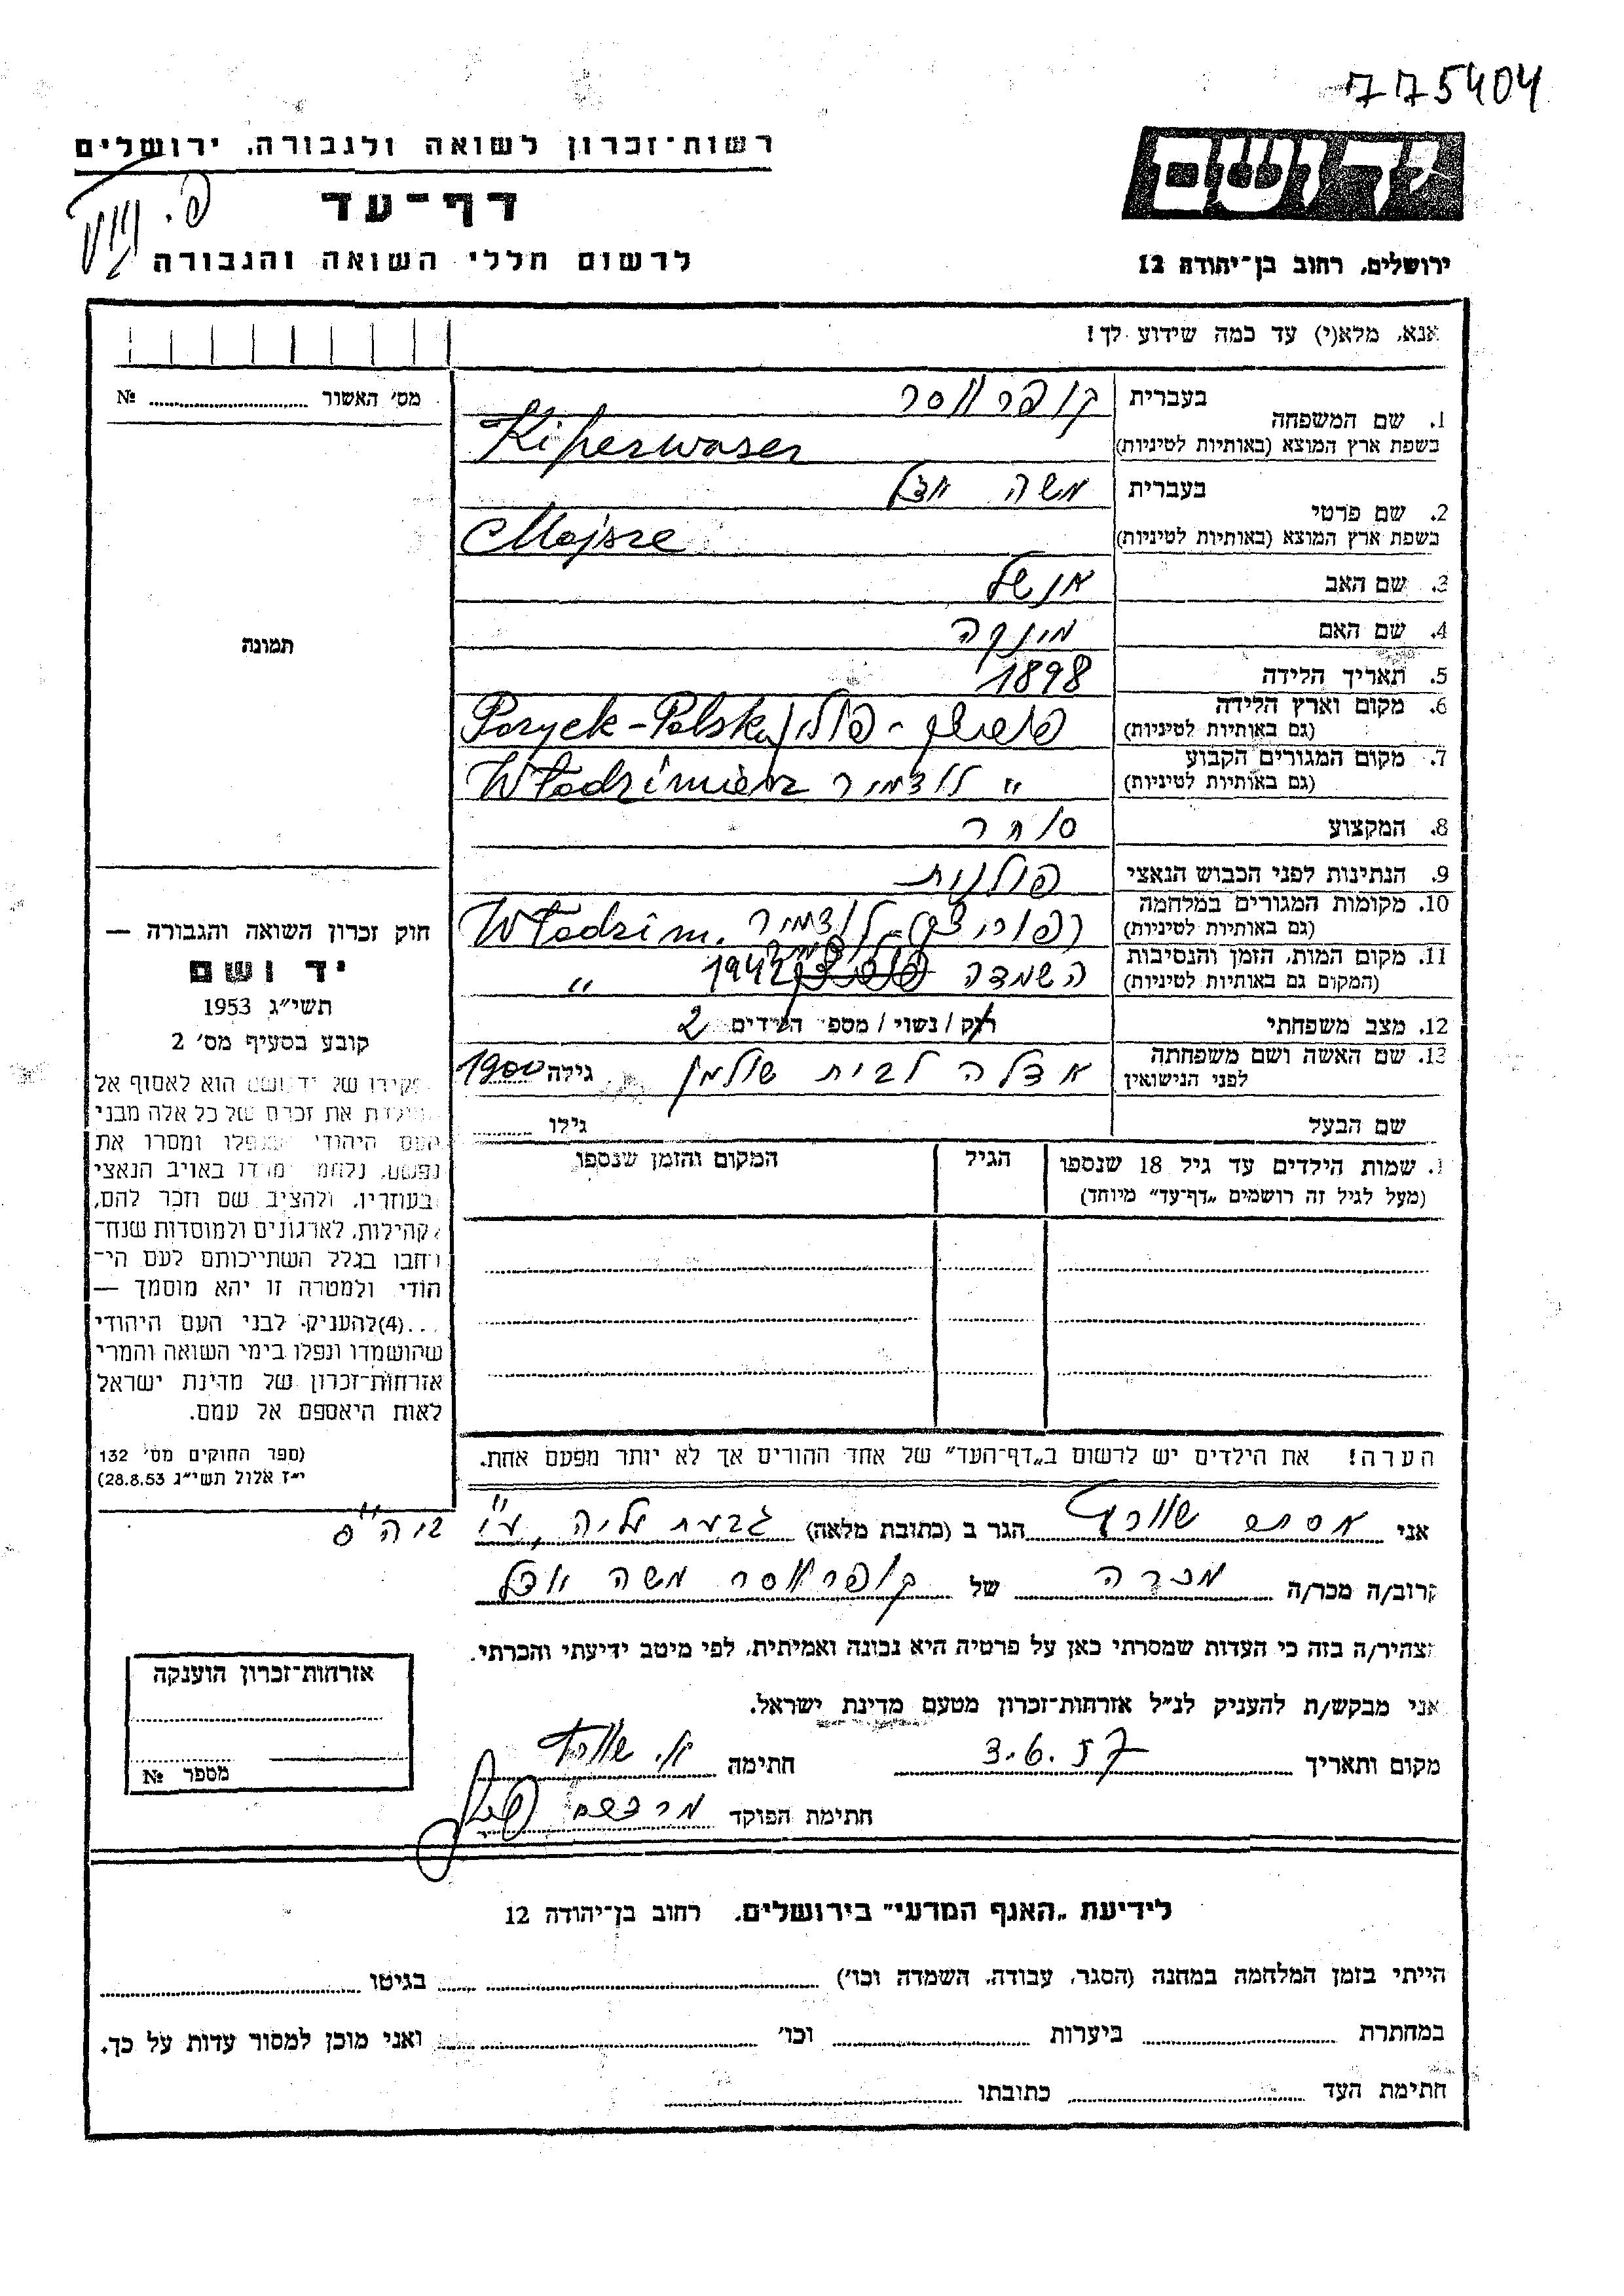 775404
רשות־זכרון לשואה ולגבורה, ירושלים
דף־עד
לרשום חללי השואה והגבורה
יד ושם
ירושלים, רחוב בן־יהודה 12
אנא, מלא(י) עד כמה שידוע לך!
מס' האשור № ........
תמונה
1. שם המשפחה בעברית קופרווסר
בשפת ארץ המוצא (באותיות לטיניות) Kiperwaser
2. שם פרטי בעברית משה
בשפת ארץ המוצא (באותיות לטיניות) Mojsze
3. שם האב אנשל
4. שם האם מינקה
5. תאריך הלידה 1898
6. מקום וארץ הלידה (גם באותיות לטיניות) פולין Poryck-Polska
7. מקום המגורים הקבוע (גם באותיות לטיניות) " לודמיר Włodzimierz
8. המקצוע סוחר
9. הנתינות לפני הכבוש הנאצי פולנית
10. מקומות המגורים במלחמה (גם באותיות לטיניות) לודמיר Włodzim.
11. מקום המות, הזמן והנסיבות (המקום גם באותיות לטיניות) השמדה 1942 "
12. מצב משפחתי רוק / נשוי / מספר הילדים 2
13. שם האשה ושם משפחתה לפני הנישואין אדלה לבית שולמן גילה 1900
שם הבעל גילו ........
שמות הילדים עד גיל 18 שנספו (מעל לגיל זה רושמים „דף־עד״ מיוחד) הגיל המקום והזמן שנספו
חוק זכרון השואה והגבורה —
יד ושם
תשי״ג 1953
קובע בסעיף מס' 2
של יד ושם הוא לאסוף אל
את זכרם של כל אלה מבני
העם היהודי שנפלו ומסרו את
נפשם, נלחמו ומרדו באויב הנאצי
ובעוזריו, ולהציב שם וזכר להם,
לקהילות, לארגונים ולמוסדות שנח־
רחבו בגלל השתייכותם לעם הי־
הודי ולמטרה זו יהא מוסמך —
...(4) להעניק לבני העם היהודי
שהושמדו ונפלו בימי השואה והמרי
אזרחות־זכרון של מדינת ישראל
לאות היאספם אל עמם.
(ספר החוקים מס' 132
י״ז אלול תשי״ג 28.8.53)
הערה! את הילדים יש לרשום ב„דף־העד״ של אחד ההורים אך לא יותר מפעם אחת.
אני אסתר שוורץ הגר ב (כתובת מלאה) גבעת עליה
קרוב/ה מכר/ה מכרה של קופרווסר משה
מצהיר/ה בזה כי העדות שמסרתי כאן על פרטיה היא נכונה ואמיתית, לפי מיטב ידיעתי והכרתי.
אני מבקש/ת להעניק לנ״ל אזרחות־זכרון מטעם מדינת ישראל.
מקום ותאריך 3.6.57 חתימה א. שוורץ
חתימת הפוקד
אזרחות־זכרון הוענקה
מספר №
לידיעת „האגף המדעי״ בירושלים, רחוב בן־יהודה 12
הייתי בזמן המלחמה במחנה (הסגר, עבודה, השמדה וכו') ........ בגיטו ........
במחתרת ........ ביערות ........ וכו' ........ ואני מוכן למסור עדות על כך.
חתימת העד ........ כתובתו ........